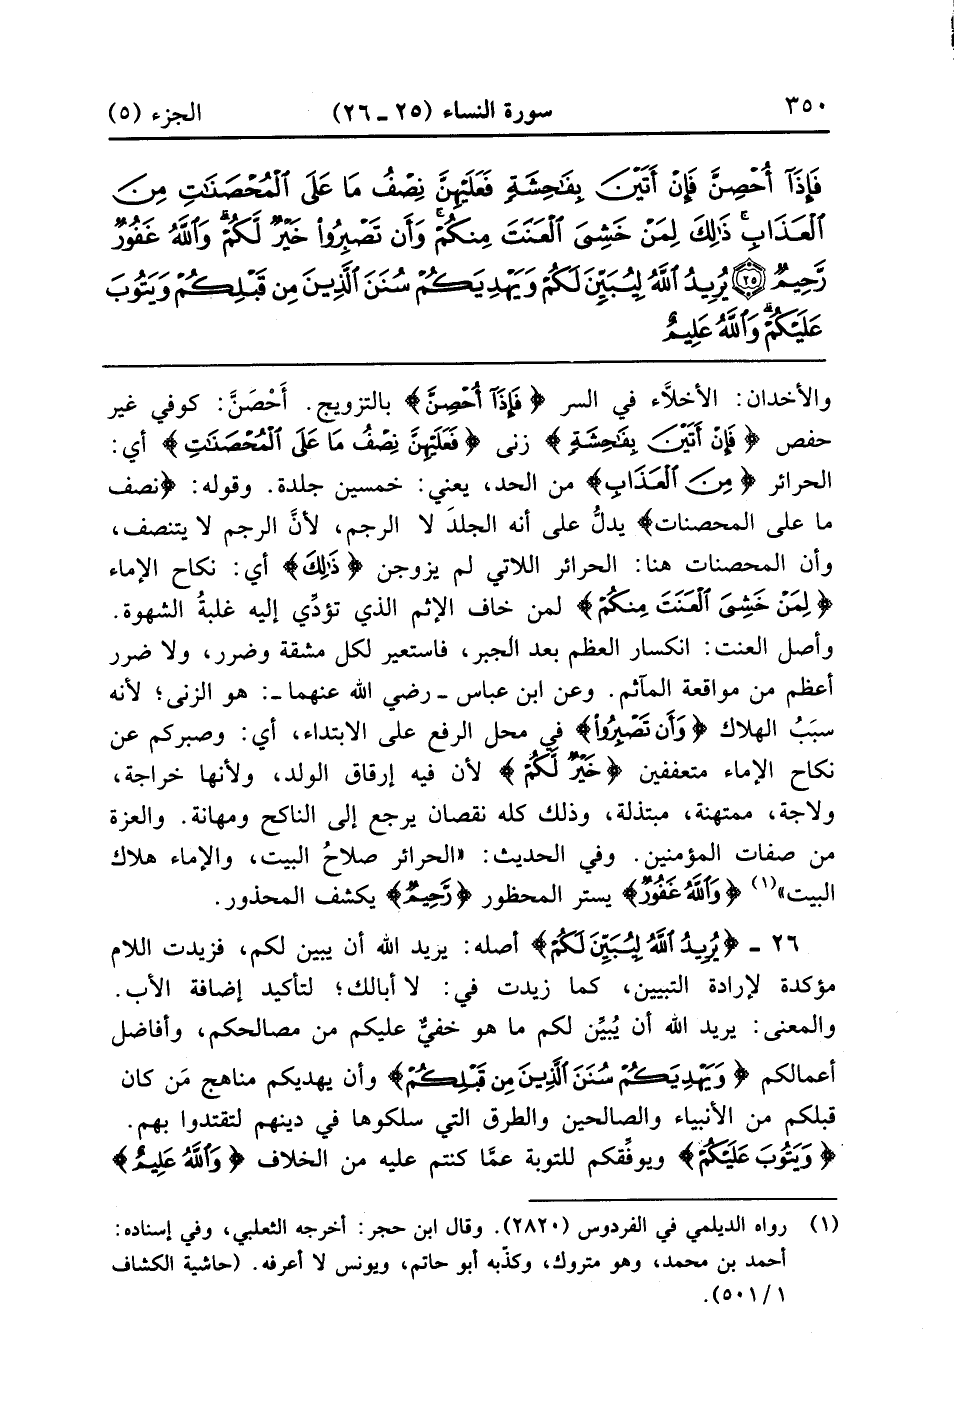 ٣٥٠ سورة النساء (٢٥ ـ ٢٦) الجزء (٥)
فَإِذَآ أُحۡصِنَّ فَإِنۡ أَتَيۡنَ بِفَٰحِشَةٖ فَعَلَيۡهِنَّ نِصۡفُ مَا عَلَى ٱلۡمُحۡصَنَٰتِ مِنَ
ٱلۡعَذَابِۚ ذَٰلِكَ لِمَنۡ خَشِيَ ٱلۡعَنَتَ مِنكُمۡۚ وَأَن تَصۡبِرُواْ خَيۡرٞ لَّكُمۡۗ وَٱللَّهُ غَفُورٞ
رَّحِيمٞ ٢٥ يُرِيدُ ٱللَّهُ لِيُبَيِّنَ لَكُمۡ وَيَهۡدِيَكُمۡ سُنَنَ ٱلَّذِينَ مِن قَبۡلِكُمۡ وَيَتُوبَ
عَلَيۡكُمۡۗ وَٱللَّهُ عَلِيمٌ
والأخدان: الأخلاَّء في السر ﴿فَإِذَآ أُحۡصِنَّ﴾ بالتزويج. أَحْصَنَّ: كوفي غير
حفص ﴿فَإِنۡ أَتَيۡنَ بِفَٰحِشَةٖ﴾ زنى ﴿فَعَلَيۡهِنَّ نِصۡفُ مَا عَلَى ٱلۡمُحۡصَنَٰتِ﴾ أي:
الحرائر ﴿مِنَ ٱلۡعَذَابِ﴾ من الحد، يعني: خمسين جلدة. وقوله: ﴿نصف
ما على المحصنات﴾ يدلُّ على أنه الجلدَ لا الرجم، لأنَّ الرجم لا يتنصف،
وأن المحصنات هنا: الحرائر اللاتي لم يزوجن ﴿ذَٰلِكَ﴾ أي: نكاح الإماء
﴿لِمَنۡ خَشِيَ ٱلۡعَنَتَ مِنكُمۡ﴾ لمن خاف الإثم الذي تؤدِّي إليه غلبةُ الشهوة.
وأصل العنت: انكسار العظم بعد الجبر، فاستعير لكل مشقة وضرر، ولا ضرر
أعظم من مواقعة المآثم. وعن ابن عباس ـ رضي الله عنهما ـ: هو الزنى؛ لأنه
سبَبُ الهلاك ﴿وَأَن تَصۡبِرُواْ﴾ في محل الرفع على الابتداء، أي: وصبركم عن
نكاح الإماء متعففين ﴿خَيۡرٞ لَّكُمۡ﴾ لأن فيه إرقاق الولد، ولأنها خراجة،
ولاجة، ممتهنة، مبتذلة، وذلك كله نقصان يرجع إلى الناكح ومهانة. والعزة
من صفات المؤمنين. وفي الحديث: «الحرائر صلاحُ البيت، والإماء هلاك
البيت»(١) ﴿وَٱللَّهُ غَفُورٞ﴾ يستر المحظور ﴿رَّحِيمٞ﴾ يكشف المحذور.
٢٦ ـ ﴿يُرِيدُ ٱللَّهُ لِيُبَيِّنَ لَكُمۡ﴾ أصله: يريد الله أن يبين لكم، فزيدت اللام
مؤكدة لإرادة التبيين، كما زيدت في: لا أبالك؛ لتأكيد إضافة الأب.
والمعنى: يريد الله أن يُبيِّن لكم ما هو خفيٌّ عليكم من مصالحكم، وأفاضل
أعمالكم ﴿وَيَهۡدِيَكُمۡ سُنَنَ ٱلَّذِينَ مِن قَبۡلِكُمۡ﴾ وأن يهديكم مناهج مَن كان
قبلكم من الأنبياء والصالحين والطرق التي سلكوها في دينهم لتقتدوا بهم.
﴿وَيَتُوبَ عَلَيۡكُمۡ﴾ ويوفِّقكم للتوبة عمَّا كنتم عليه من الخلاف ﴿وَٱللَّهُ عَلِيمٌ﴾
(١) رواه الديلمي في الفردوس (٢٨٢٠). وقال ابن حجر: أخرجه الثعلبي، وفي إسناده:
أحمد بن محمد، وهو متروك، وكذّبه أبو حاتم، ويونس لا أعرفه. (حاشية الكشاف
١/٥٠١).